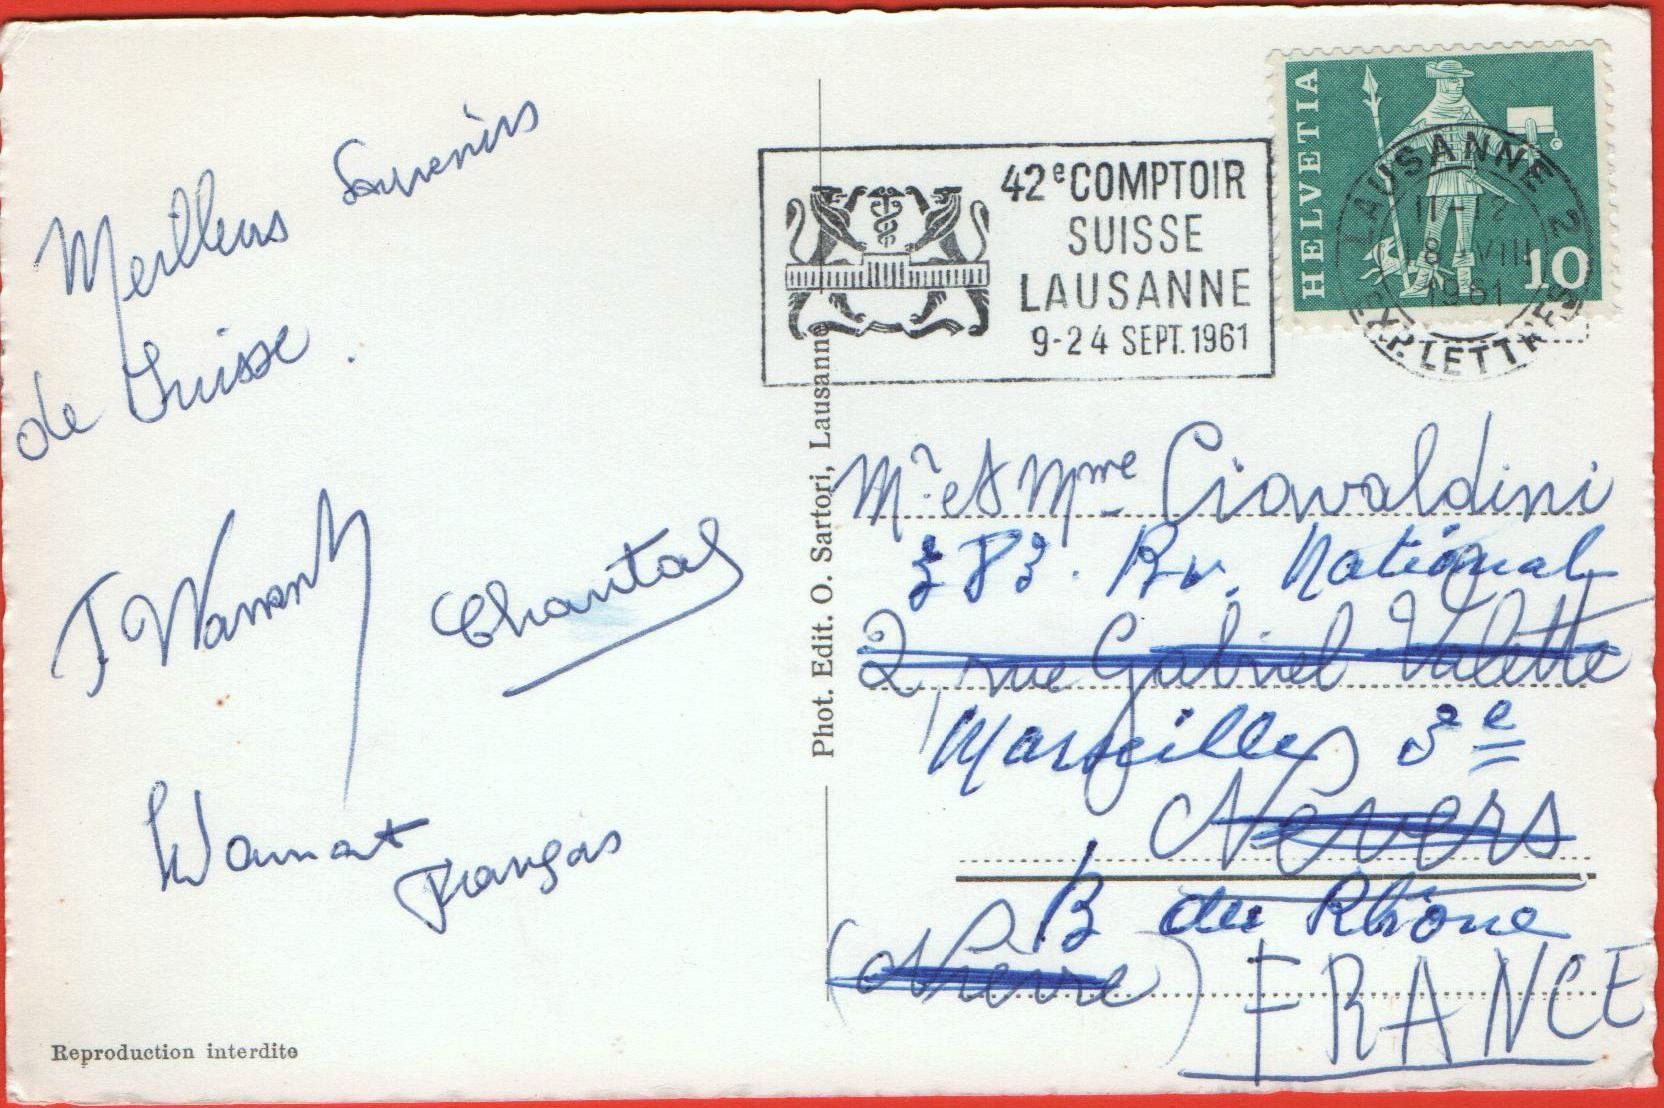 Meilleurs Souvenirs
de Suisse.
Chantal
HELVETIA
10
LAUSANNE 2
11-12
18 VIII
1961
EXP. LETTRES
42e COMPTOIR
SUISSE
LAUSANNE
9-24 SEPT. 1961
Phot. Edit. O. Sartori, Lausanne
Mr. et Mme Ciavaldini
383. Bv. National
2, rue Gabriel Valette
Marseille 3e
Nevers
B du Rhône
(Nièvre)
FRANCE
Reproduction interdite